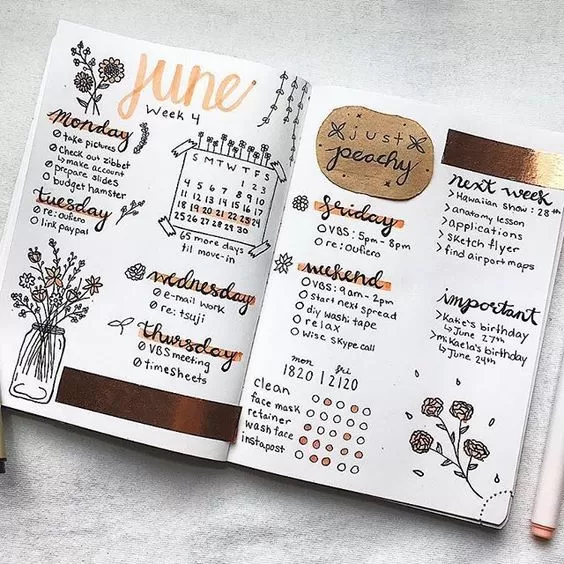 June
Week 4
Monday
take pictures
check out zibbet
↳ make account
prepare slides
budget hamster
Tuesday
re: oufiero
link paypal
S M T W T F S
1 2 3
4 5 6 7 8 9 10
11 12 13 14 15 16 17
18 19 20 21 22 23 24
25 26 27 28 29 30
65 more days
til move-in
Wednesday
e-mail work
re: tsuji
Thursday
VBS meeting
timesheets
just
peachy
friday
VBS: 5pm - 8pm
re: oufiero
weekend
VBS: 9am - 2pm
start next spread
diy washi tape
relax
wise skype call
mon fri
clean
face mask
retainer
wash face
instapost
next week
> Hawaiian show: 28th
> anatomy lesson
> applications
> sketch flyer
> find airport maps
important
> Kate's birthday
↳ June 27th
> mikaela's birthday
↳ June 24th